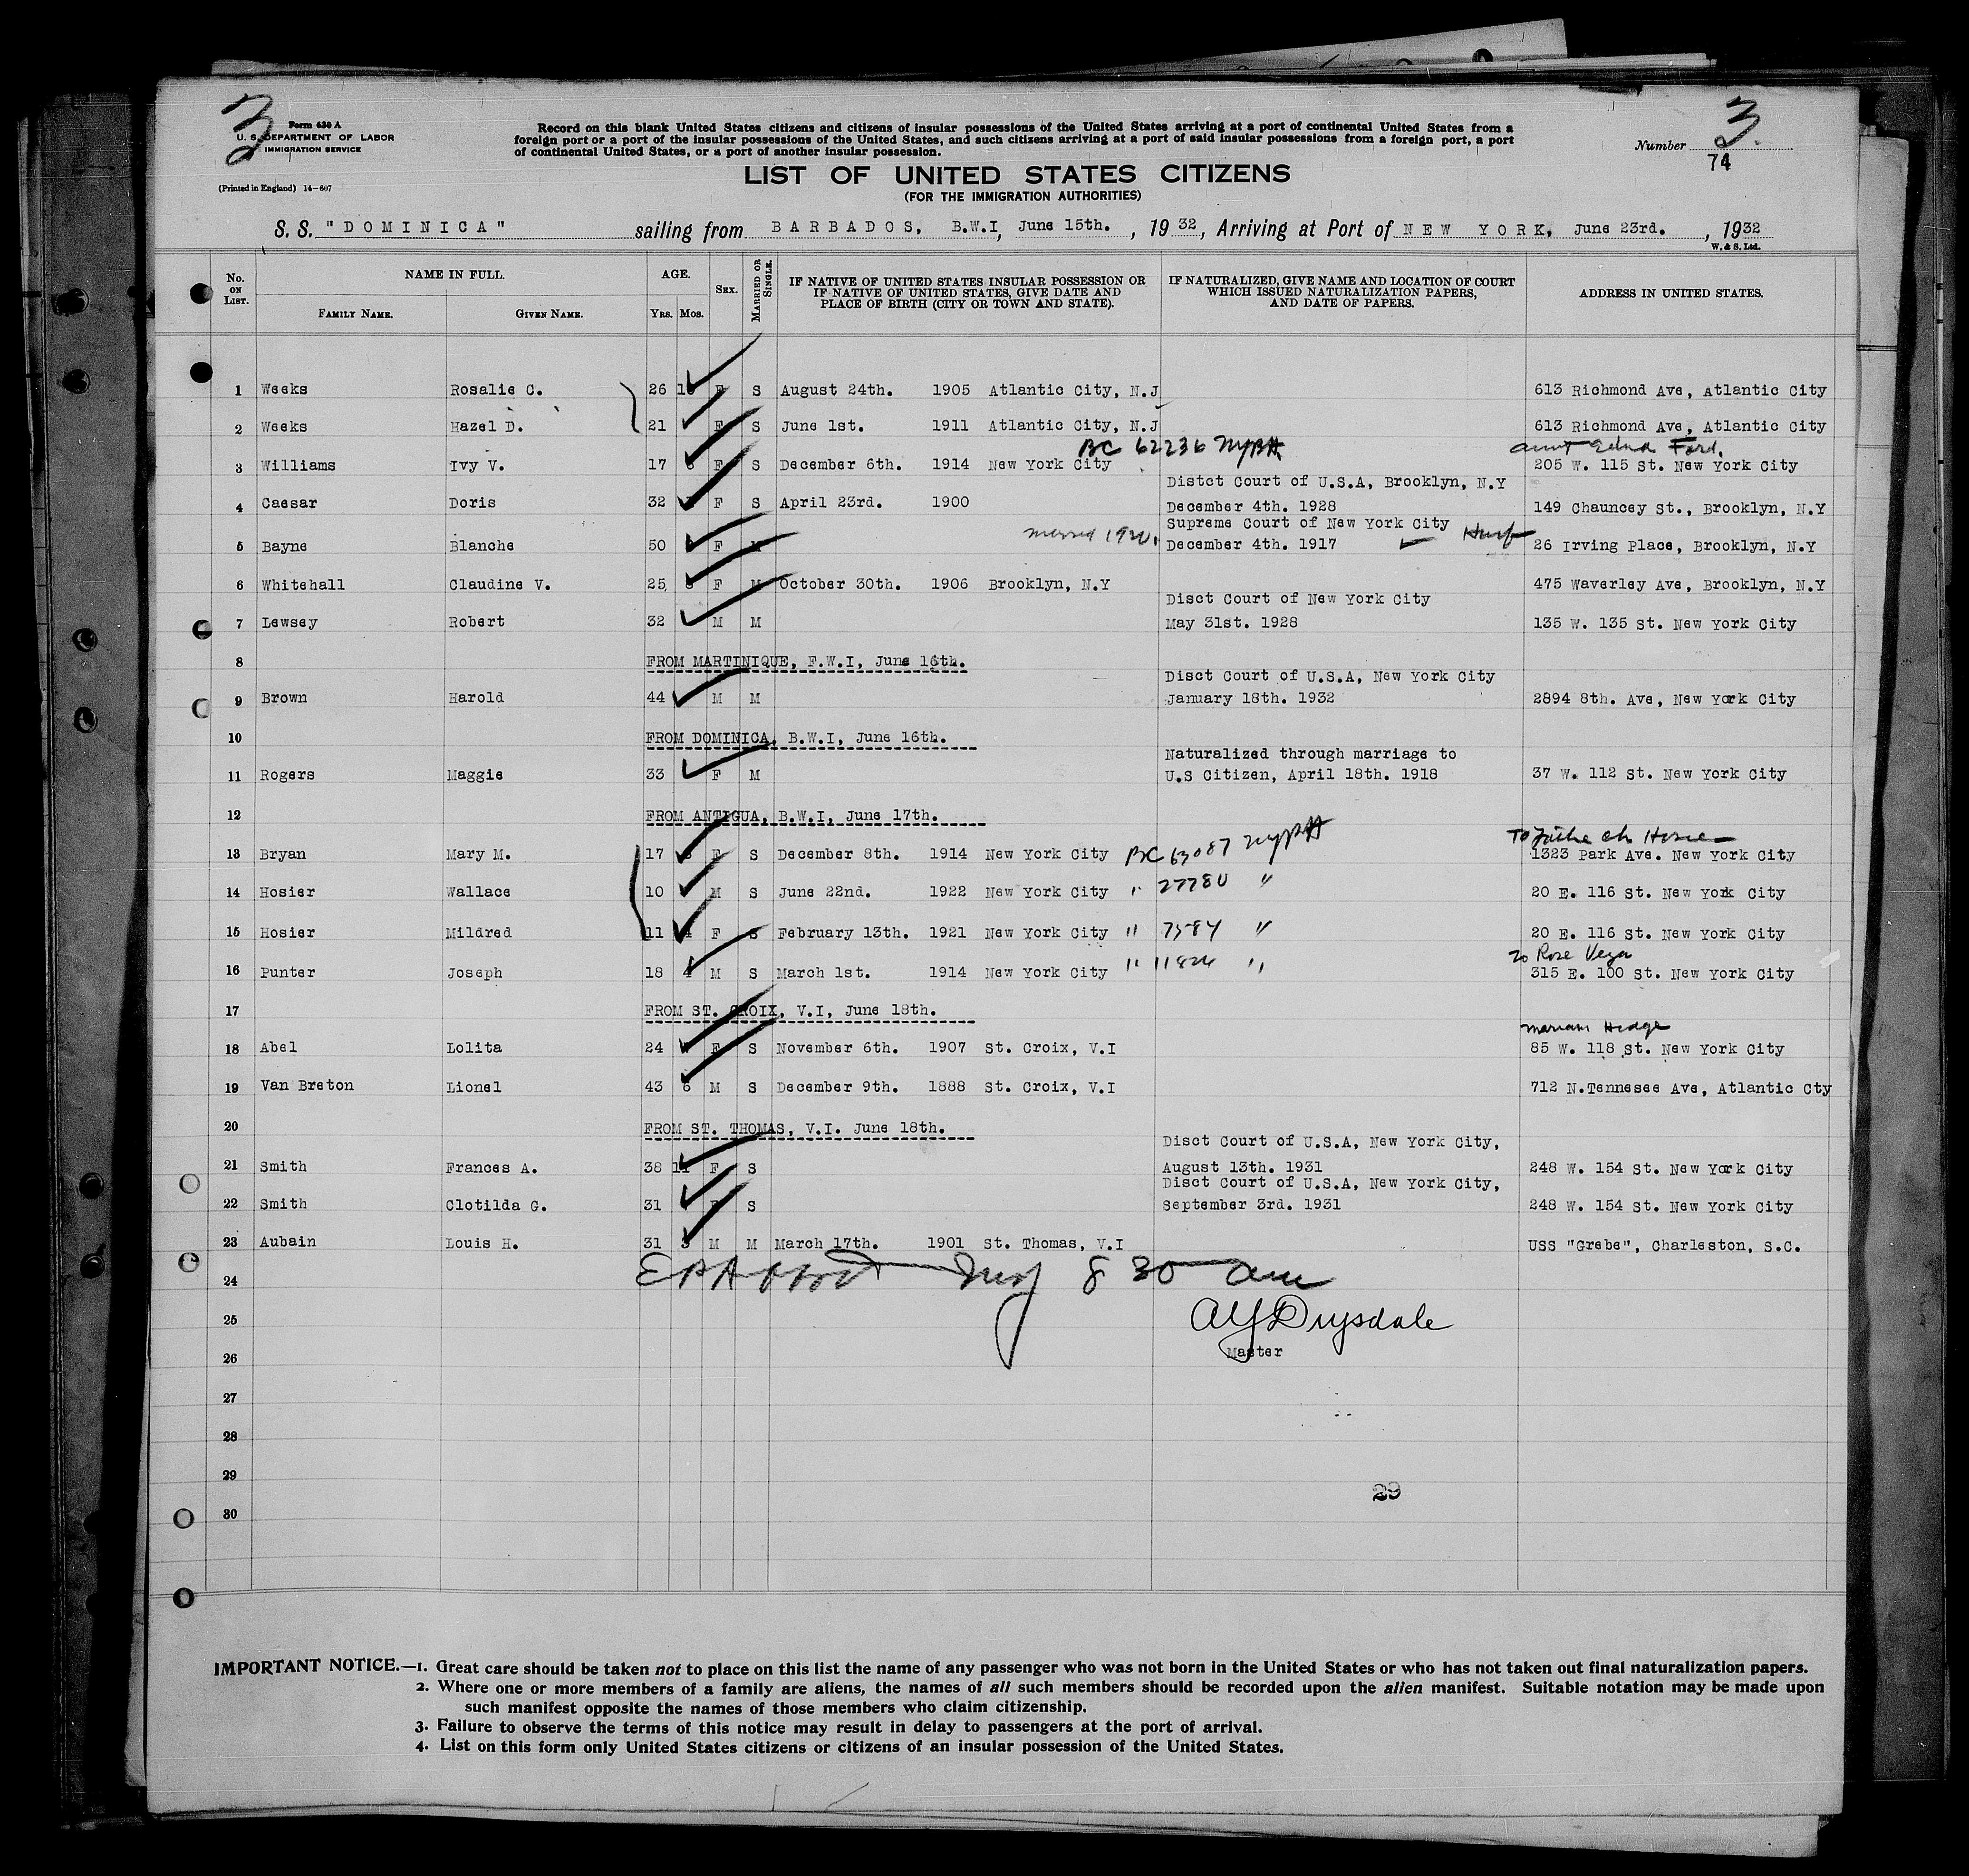 3
Form 430 A
U. S. DEPARTMENT OF LABOR
IMMIGRATION SERVICE
(Printed in England) 14-607
Record on this blank United States citizens and citizens of insular possessions of the United States arriving at a port of continental United States from a
foreign port or a port of the insular possessions of the United States, and such citizens arriving at a port of said insular possessions from a foreign port, a port
of continental United States, or a port of another insular possession.
Number 3.
74
LIST OF UNITED STATES CITIZENS
(FOR THE IMMIGRATION AUTHORITIES)
S. S. "DOMINICA" sailing from BARBADOS, B.W.I, June 15th. , 19 32, Arriving at Port of NEW YORK, June 23rd. , 1932
W. & S. Ltd.
No. ON LIST. NAME IN FULL. AGE. SEX. MARRIED OR SINGLE. IF NATIVE OF UNITED STATES INSULAR POSSESSION OR IF NATIVE OF UNITED STATES, GIVE DATE AND PLACE OF BIRTH (CITY OR TOWN AND STATE). IF NATURALIZED, GIVE NAME AND LOCATION OF COURT WHICH ISSUED NATURALIZATION PAPERS, AND DATE OF PAPERS. ADDRESS IN UNITED STATES.
FAMILY NAME. GIVEN NAME. YRS. MOS.
1 Weeks Rosalie C. 26 F S August 24th. 1905 Atlantic City, N.J 613 Richmond Ave, Atlantic City
2 Weeks Hazel D. 21 F S June 1st. 1911 Atlantic City, N.J 613 Richmond Ave, Atlantic City
BC 62236 aunt Edna Ford.
3 Williams Ivy V. 17 6 F S December 6th. 1914 New York City 205 W. 115 St. New York City
Distct Court of U.S.A, Brooklyn, N.Y
4 Caesar Doris 32 F S April 23rd. 1900 December 4th. 1928 149 Chauncey St., Brooklyn, N.Y
Supreme Court of New York City
5 Bayne Blanche 50 F M December 4th. 1917 26 Irving Place, Brooklyn, N.Y
6 Whitehall Claudine V. 25 F M October 30th. 1906 Brooklyn, N.Y 475 Waverley Ave, Brooklyn, N.Y
Disct Court of New York City
7 Lewsey Robert 32 M M May 31st. 1928 135 W. 135 St. New York City
8 FROM MARTINIQUE, F.W.I, June 16th.
Disct Court of U.S.A, New York City
9 Brown Harold 44 M M January 18th. 1932 2894 8th. Ave, New York City
10 FROM DOMINICA, B.W.I, June 16th.
Naturalized through marriage to
11 Rogers Maggie 33 F M U.S Citizen, April 18th. 1918 37 W. 112 St. New York City
12 FROM ANTIGUA, B.W.I, June 17th.
13 Bryan Mary M. 17 F S December 8th. 1914 New York City BC 63087 1323 Park Ave. New York City
14 Hosier Wallace 10 M S June 22nd. 1922 New York City " 27780 " 20 E. 116 St. New York City
15 Hosier Mildred 11 4 F S February 13th. 1921 New York City " 7584 " 20 E. 116 St. New York City
to Rose Vega
16 Punter Joseph 18 4 M S March 1st. 1914 New York City " " 315 E. 100 St. New York City
17 FROM ST. CROIX, V.I, June 18th.
Mariam Hodge
18 Abel Lolita 24 F S November 6th. 1907 St. Croix, V.I 85 W. 118 St. New York City
19 Van Breton Lionel 43 6 M S December 9th. 1888 St. Croix, V.I 712 N.Tennesee Ave, Atlantic Cty
20 FROM ST. THOMAS, V.I. June 18th.
Disct Court of U.S.A, New York City,
21 Smith Frances A. 38 11 F S August 13th. 1931 248 W. 154 St. New York City
Disct Court of U.S.A, New York City,
22 Smith Clotilda G. 31 F S September 3rd. 1931 248 W. 154 St. New York City
23 Aubain Louis H. 31 3 M M March 17th. 1901 St. Thomas, V.I USS "Grebe", Charleston, S.C.
24 8 30 am
25 Drysdale
26 Master
27
28
29
29
30
IMPORTANT NOTICE.—1. Great care should be taken not to place on this list the name of any passenger who was not born in the United States or who has not taken out final naturalization papers.
2. Where one or more members of a family are aliens, the names of all such members should be recorded upon the alien manifest. Suitable notation may be made upon
such manifest opposite the names of those members who claim citizenship.
3. Failure to observe the terms of this notice may result in delay to passengers at the port of arrival.
4. List on this form only United States citizens or citizens of an insular possession of the United States.